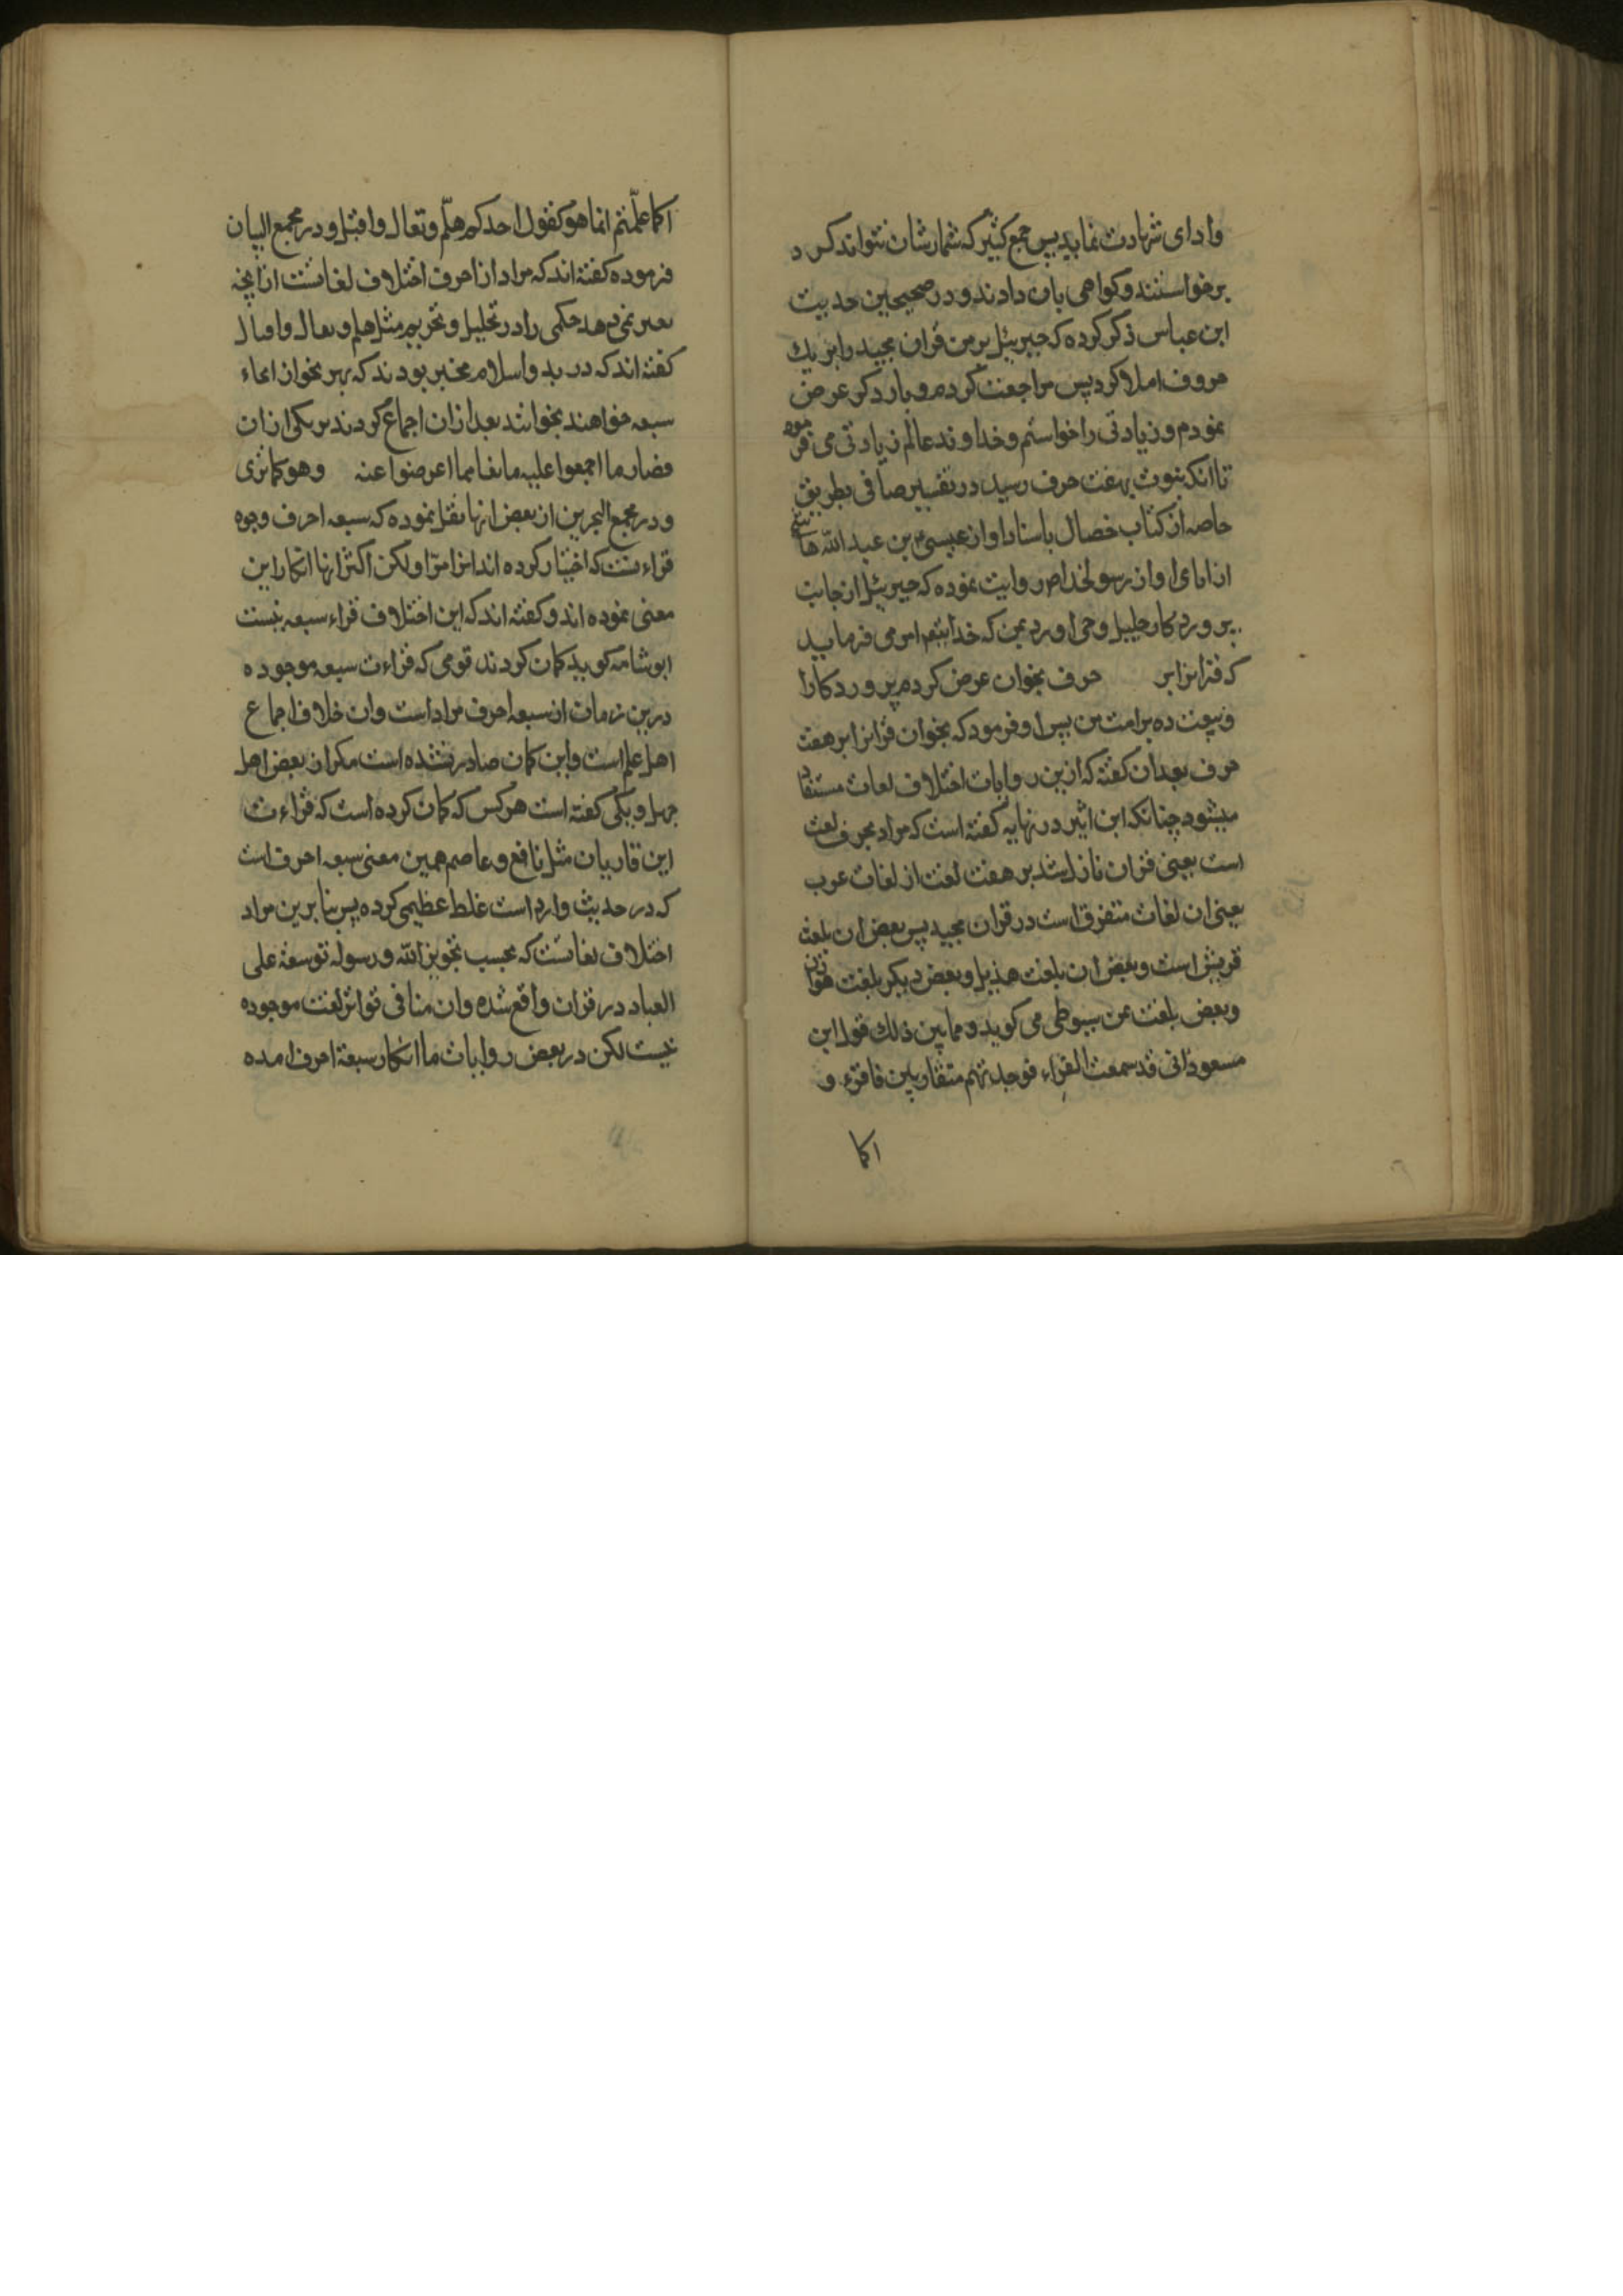 وادای شهادت نماید پس جمع کثیر که شمارشان نتواند کرد
برخواستند و کواهی بان دادند و در صحیحین حدیث
ابن عباس ذکر کرده که جبرئیل بر من قران مجید را بر یك
حروف املا کرد پس مراجعت کردم و بار دکر عرض
نمودم و زیادتی را خواستم و خداوند عالم زیادتی می فرمود
تا انکه بنوبت بهفت حرف رسید در تفسیر صافی بطریق
خاصه از کتاب خصال باسناد او از عیسی بن عبد الله هاشمی
از ابای او از رسولخدا ص روایت نموده که جبرئیل از جانب
پروردکار جلیل وحی اورد بمن که خدایتعم امر می فرماید
که قرانرا بر حرف بخوان عرض کردم پروردکارا
وسعت ده بر امت من پس او فرمود که بخوان قرانرا بر هفت
حرف بعد ان کفته که ازین روایات اختلاف لغات مستفاد
میشود چنانکه ابن اثیر در نهایه کفته است که مراد بحرف لغت
است یعنی قران نازل شد بر هفت لغت از لغات عرب
یعنی ان لغات متفرق است در قران مجید پس بعض ان بلغت
قریش است و بعض ان بلغت هذیل و بعض دیکر بلغت هوازن
و بعض بلغت یمن سیوطی می کوید و مما یبین ذلك قول ابن
مسعود انی قد سمعت القراء فوجدتهم متقاربین فاقرء و
اکا
اکما علمتم انما هو کقول احدکم هلم و تعال و اقبل و در مجمع البیان
فرموده کفته اند که مراد از احرف اختلاف لغاتست از انچه
تغییر نمی دهد حکمی را در تحلیل و تحریم مثل هلم و تعال و اقبال
کفته اند که در بدو اسلام مخیر بودند که بهر نحو از انحاء
سبعه خواهند بخوانند بعد از ان اجماع کردند بر یکی از ان
فصار ما اجمعوا علیه مانعا مما اعرضوا عنه وهو کما تری
و در مجمع البحرین از بعض انها نقل نموده که سبعه احرف وجوه
قراءتست که اختیار کرده اند انرا قرا و لکن اکثر انها انکار این
معنی نموده اند و کفته اند که این اختلاف قراء سبعه نیست
ابو شامه کوید کمان کردند قومی که قراءت سبعه موجوده
درین زمان از سبعه احرف مراد است و ان خلاف اجماع
اهل علم است و این کمان صادر نشده است مکر از بعض اهل
جهل و مکی کفته است هر کس که کمان کرده است که قراءت
این قاریان مثل نافع و عاصم همین معنی سبعه احرف است
که در حدیث وارد است غلط عظیمی کرده پس بنابرین مراد
اختلاف لغاتست که بحسب تجویز الله و رسوله توسعة علی
العباد در قران واقع شده و ان منافی تواتر لغت موجوده
نیست لکن در بعض روایات ما انکار سبعة احرف امده